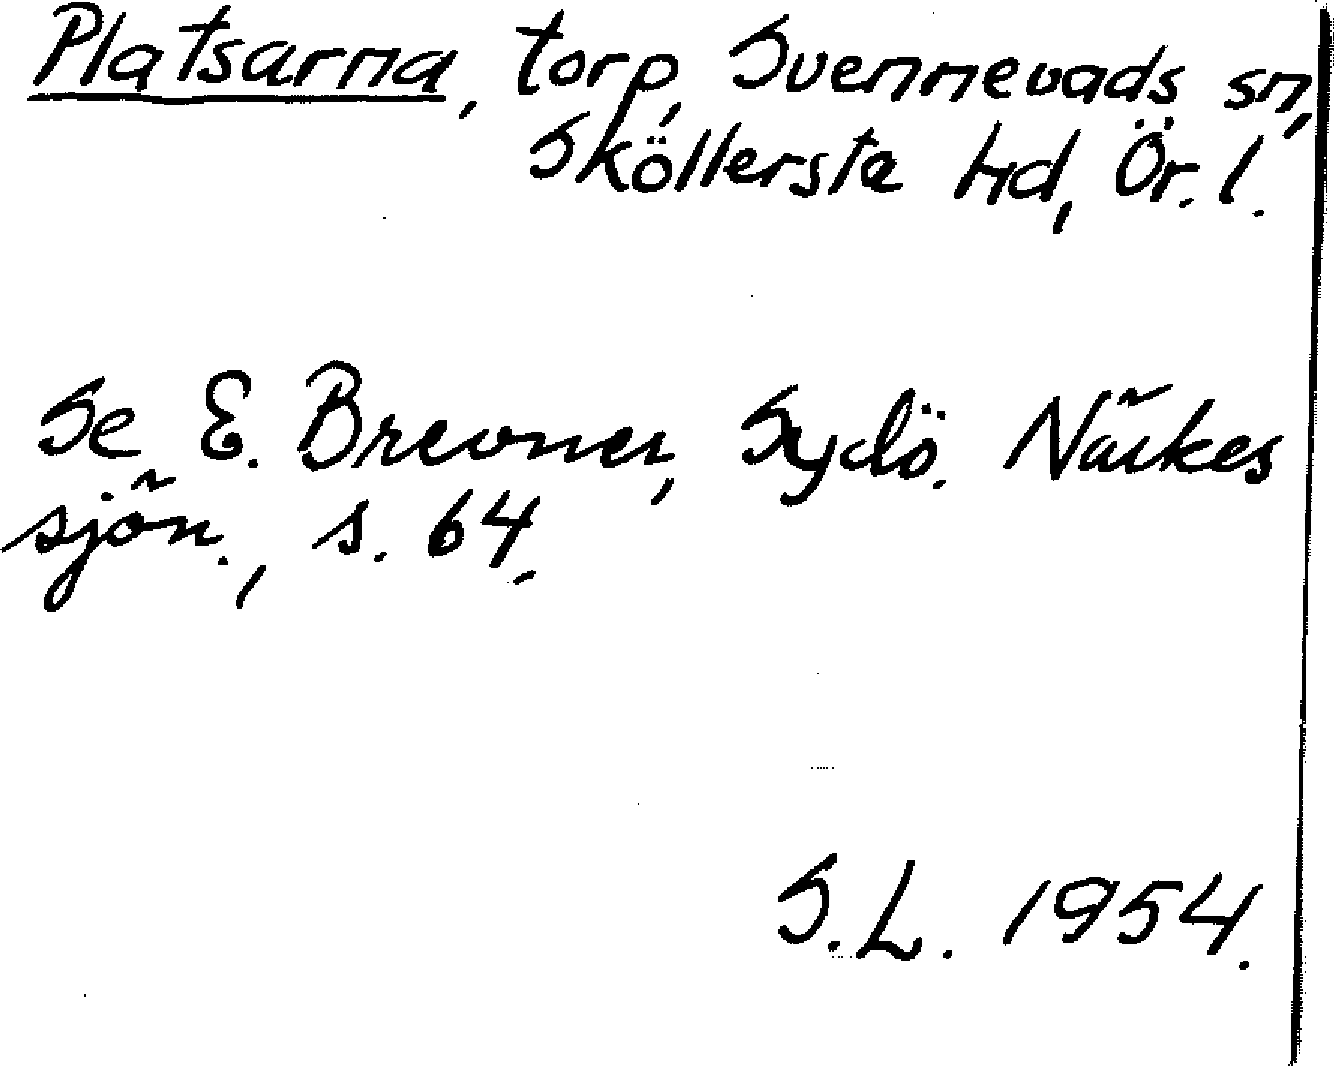 Platsarna, torp, Svennevads sn,
Sköllersta hd, Ör. l.
Se E. Brevner, Sydö. Närkes
sjön., s. 64.
S. L. 1954.